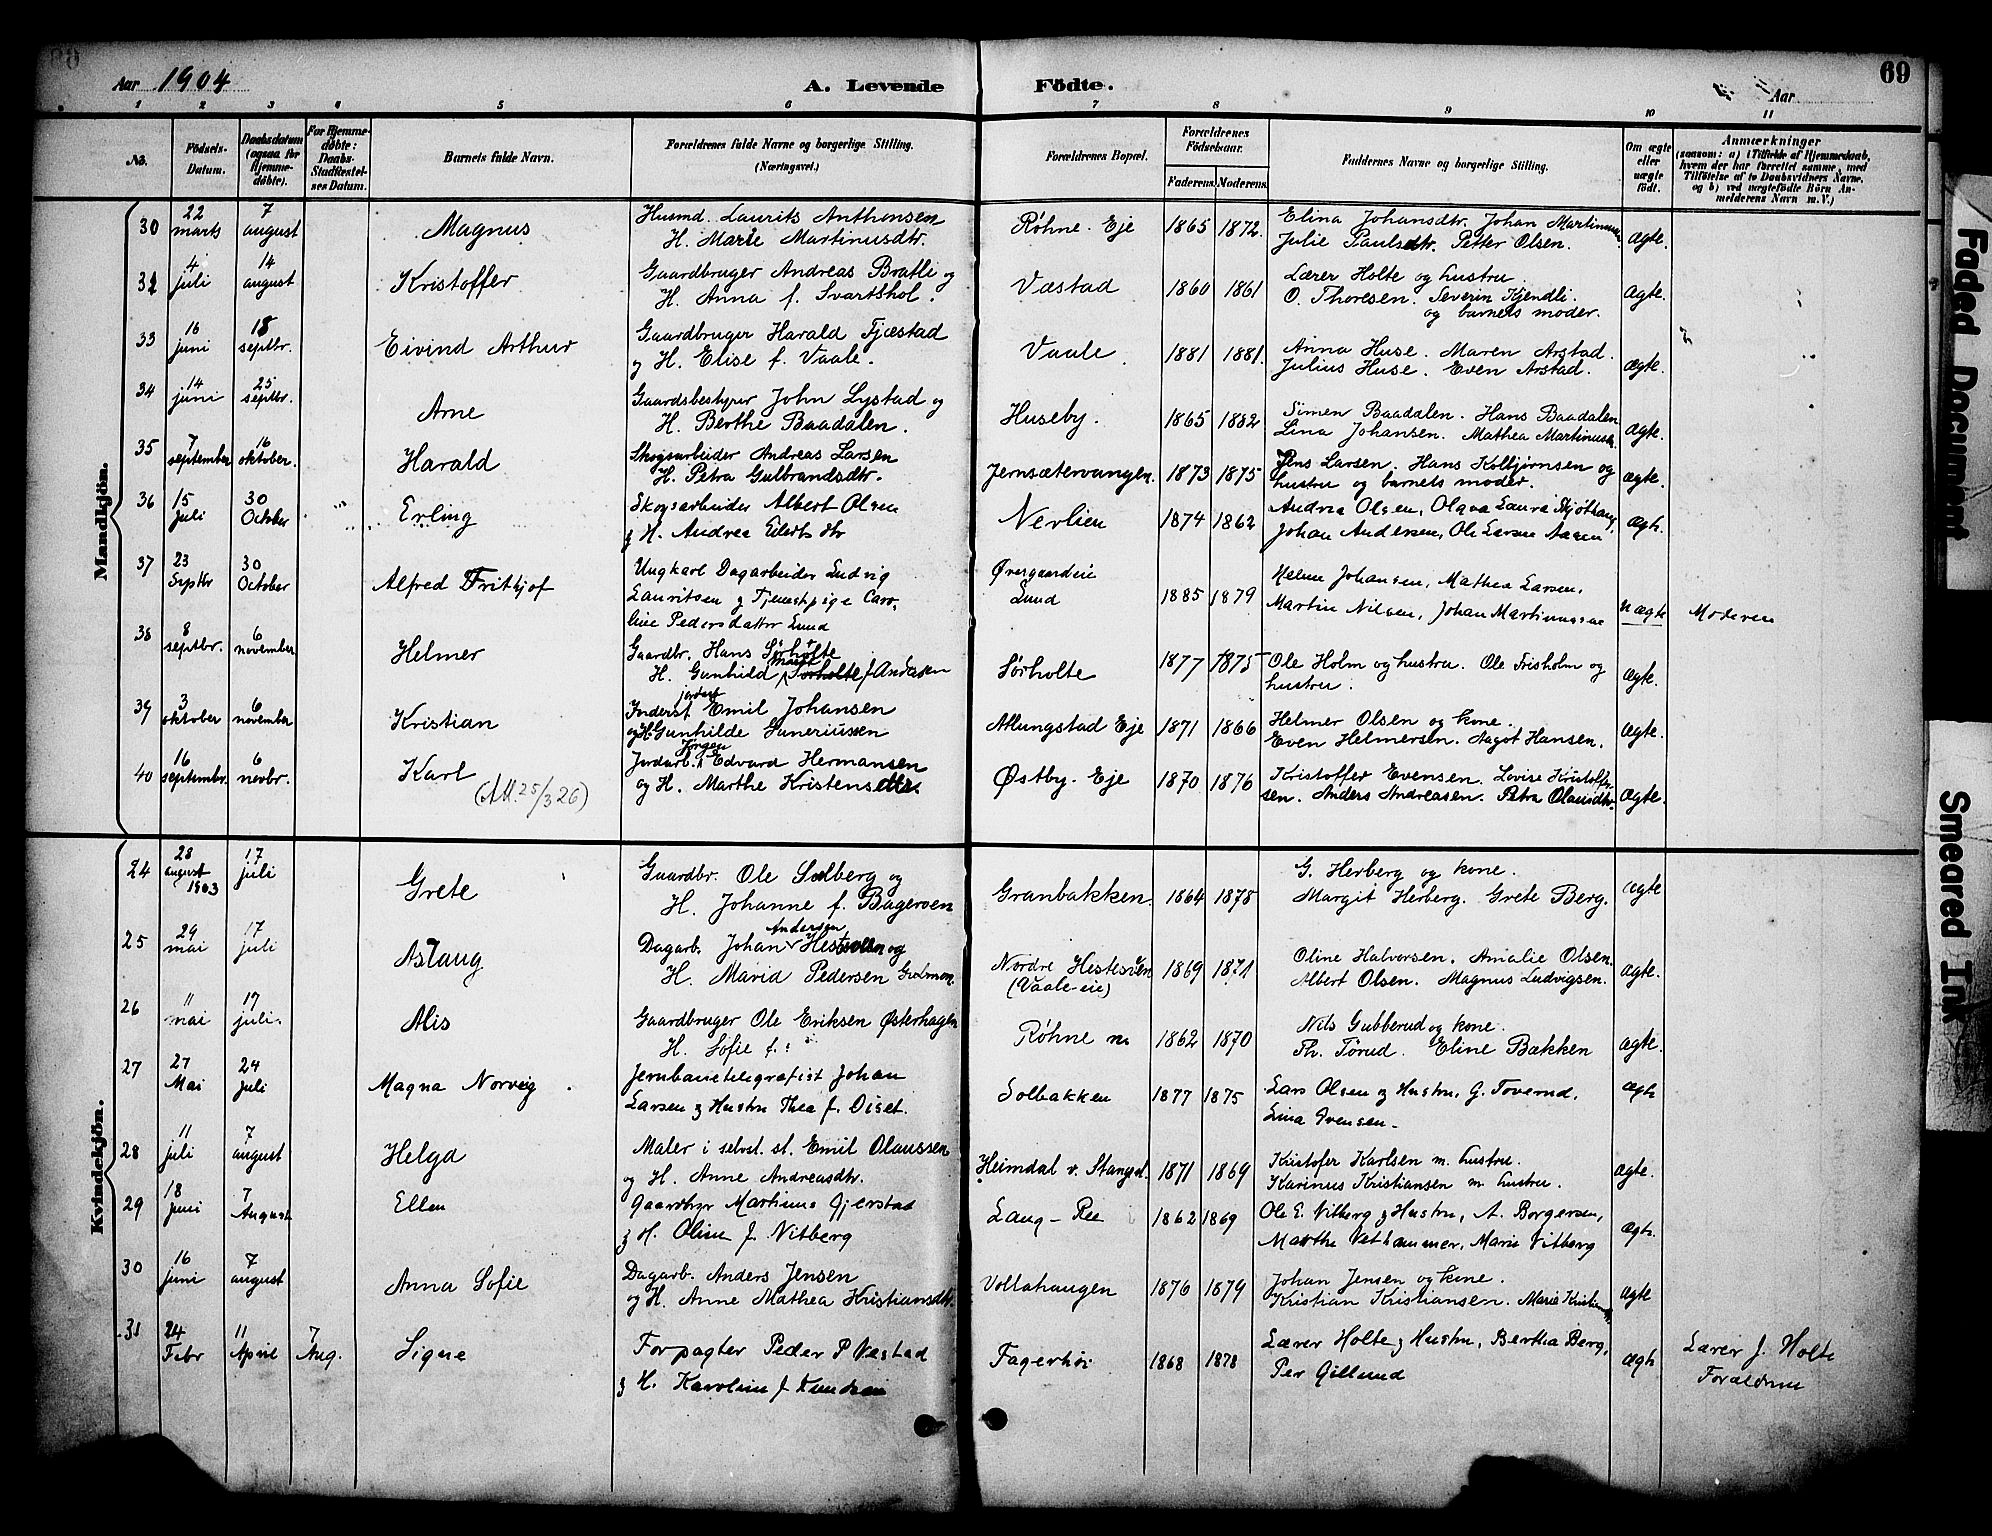 Aar 1904
A. Levende Födte.
Aar
69
1 2 3 4 5 6 7 8 9 10 11
No.
Födsels-Datum.
Daabsdatum (ogsaa for Hjemme-döbte).
For Hjemme-döbte: Daabs-Stadfæstel-ses Datum.
Barnets fulde Navn.
Forældrenes fulde Navne og borgerlige Stilling. (Næringsvei.)
Forældrenes Bopæl.
Forældrenes Födselsaar.
Faderens. Moderens.
Faddernes Navne og borgerlige Stilling.
Om ægte eller uægte födt.
Anmærkninger
(saasom: a) i Tilfælde af Hjemmedaab, hvem der har forrettet samme, med Tilföielse af to Daabsvidners Navne, og b) ved uægtefödte Börn An-melderens Navn m. V.)
Mandkjön.
30 22 marts 7 august Magnus Husmd. Laurits Anthonsen
H. Marie Martinusdtr. Røhne Eje 1865 1872. Elina Johansdtr. Johan Martinusen
Julie Paulsdtr. Petter Olsen. Ægte.
32 4 juli 14 august Kristoffer Gaardbruger Andreas Bratli og
H. Anna f. Svartshol. Væstad 1860 1861 Lærer Holte og hustru.
O. Thoresen. Severin Kjendli.
og barnets moder. Ægte.
33 16 juni 18 septbr. Eivind Arthur Gaardbruger Harald Fjæstad
og H. Elise f. Vaale. Vaale 1881 1881. Anna Huse. Maren Arstad.
Julius Huse. Even Arstad. Ægte.
34 14 juni 25 septbr. Arne Gaardsbestyrer John Lystad og
H. Berthe Baadalen. Huseby. 1865 1882 Simen Baadalen. Hans Baadalen
Lina Johansen. Mathea Martinusen. Ægte.
35 7 september 16 oktober. Harald Skogsarbeider Andreas Larsen
H. Petra Gulbrandsdtr. Jernsætervangen 1873 1875 Jens Larsen. Hans Kolbjørnsen og
hustru og barnets moder. Ægte.
36 15 juli 30 October Erling Skogsarbeider Albert Olsen
g H. Andrea Eilertsdtr Nerlien 1874 1862 Andrea Olsen, Olava Laura
Johan Andersen, Ole Larsen Aasen Ægte.
37 23 Septbr 30 October Alfred Frithjof Ungkarl Dagarbeider Ludvig
Lauritsen g Tjenestpige Caro-
line Pedersdatter Lund Øvergaardeie
Lund 1885 1879 Helene Johansen, Mathea Larsen,
Martin Nilsen, Johan Martinussen Uægte Moderen
38 8 septbr. 6 november Helmer Gaardbr. Hans Sørholte
H. Gunhild Marie Sørholte f Andersen Sørholte 1877 1875 Ole Holm og hustru. Ole Frisholm og
hustru. Ægte.
39 3 oktober 6 november Kristian Inderst jordarb Emil Johansen
og H. Gunhilde Suneriussen Atlungstad Eje 1871 1866 Helmer Olsen og kone.
Even Helmersen. Aagot Hansen. Ægte.
40 16 septembr. 6 novbr. Karl (Att. 25/3 26) Jordarb. Jørgen Edvard Hermansen
og H. Marthe Kristensdtr. Østby. Eje 1870 1876 Kristoffer Evensen. Lovise Kristoffer-
sen. Anders Andreasen. Petra Olausdtr. Ægte.
Kvindekjön.
24 28 august 1903 17 juli Grete Gaardbr. Ole Solberg og
H. Johanne f. Bageroen Granbakken. 1864 1878 G. Herberg og kone.
Margit Herberg. Grete Berg. Ægte
25 29 mai 17 juli Aslaug Dagarb. Johan Andersen Hestesveen og
H. Marie Pedersen Nordre Hestesveen
(Vaale-eie) 1869 1871 Oline Halvorsen. Amalie Olsen.
Albert Olsen. Magnus Ludvigsen. Ægte.
26 11 mai 17 juli. Alis Gaardbruger Ole Eriksen Østerhagen
H. Sofie f. Røhne n. 1862 1870 Nils Gubberud og kone.
Th. Tørud. Eline Bækken Ægte.
27 27 Mai 24 juli Magna Norveig Jernbanetelegrafist Johan
Larsen g Hustru Thea f. Diset. Solbakken 1877 1875 Lars Olsen g Hustru, G. Toverud,
Lina Ivensen. Ægte
28 11 juli 7 august Helga Maler i selvst. st. Emil Olaussen
og H. Anne Andreasdtr. Heimdal v. Stangest. 1871 1869 Kristofer Karlsen m. hustru.
Karinus Kristiansen m hustru. Ægte.
29 18 juni 7 August Ellen Gaardbr Martinus Gjerstad
g H. Oline f. Vitberg Laug-Ree 1862 1869 Ole E. Vitberg g Hustru, A. Borgersen,
Marthe Vethammer, Marie Vitberg Ægte.
30 16 juni 7 august Anna Sofie Dagarb. Anders Jensen
og H. Anne Mathea Kristiansdtr. Vollahaugen 1876 1879 Johan Jensen og kone.
Kristian Kristiansen. Marie Kristians Ægte
31 24 Febr 11 April 7 Aug. Signe Forpagter Peder P Væstad
g H. Karoline f Knudsen Fagerhøi 1868 1878 Lærer Holte g Hustru, Bertha Berg,
Per Gillund Ægte Lærer J. Holte
Forældrene
Faded Document
Smeared Ink